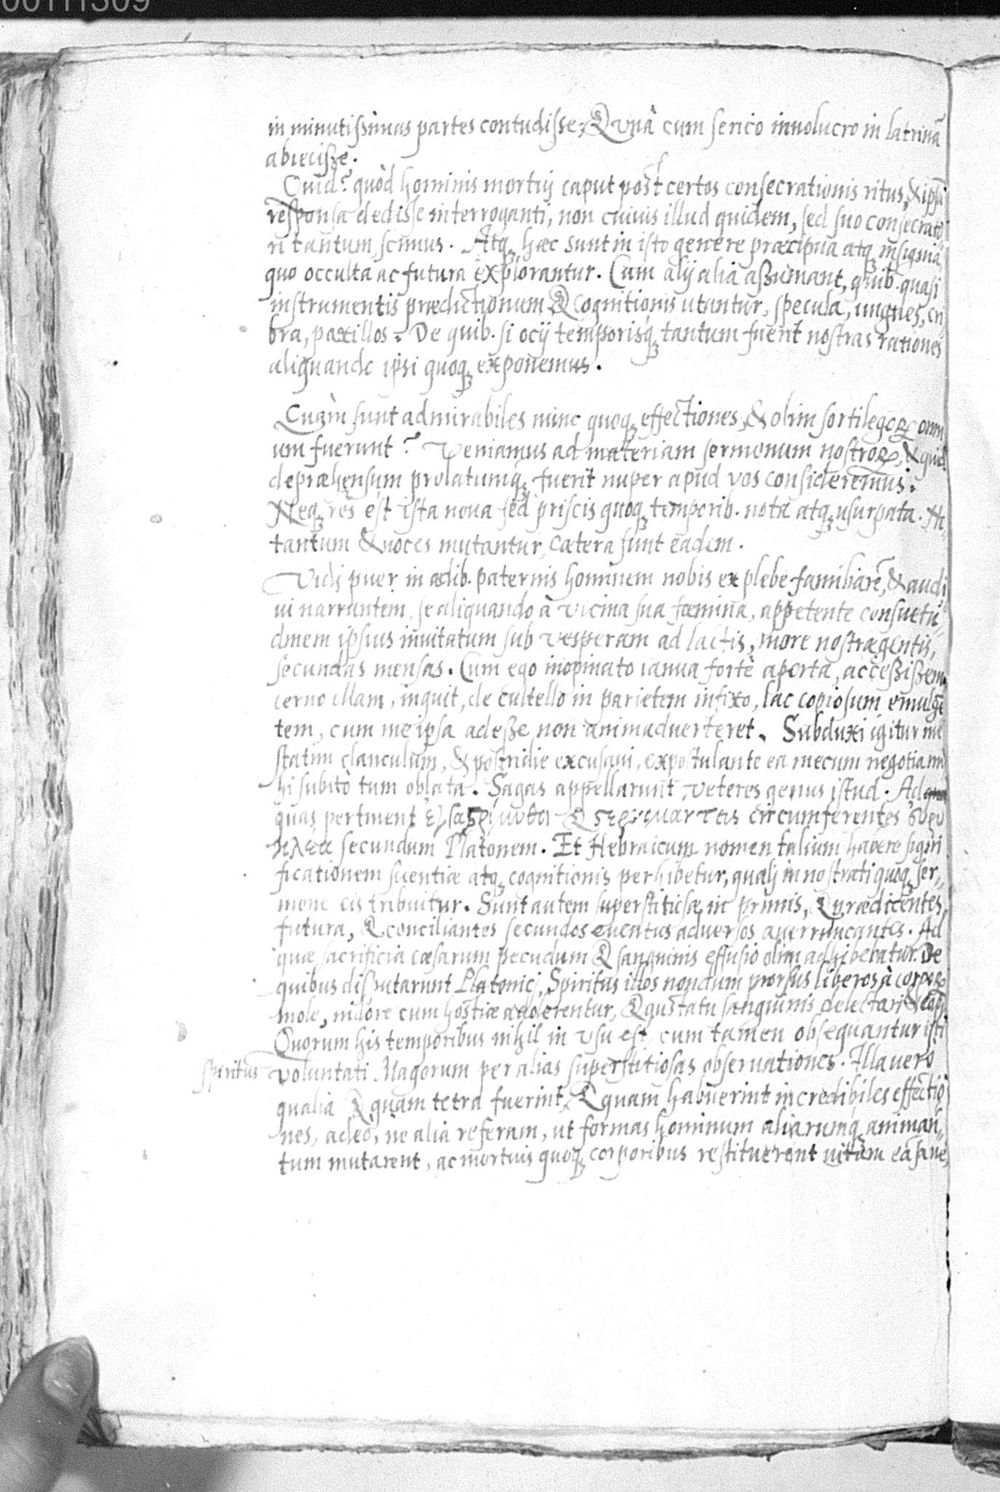 00111309
in minutissimas partes contudisse, & vnâ cum serico inuolucro in latrinā
abiecisse.
Quid? quòd hominis mortui caput post certos consecrationis ritus, & ipsū
responsa dedisse interroganti, non cuiuis illud quidem, sed suo consecrato
ri tantum, scimus. Atq; hæc sunt in isto genere præcipua atq; insignia,
quo occulta ac futura explorantur. Cum alij alia assumant, quib. quasi
instrumentis prædictionum & cognitionis utantur, specula, ungues, cri
bra, paxillos. De quib. si ocij temporisq; tantum fuerit nostras rationes
aliquando ipsi quoq; exponemus.
Quàm sunt admirabiles nunc quoq; effectiones, & olim sortilegorꝫ omni
um fuerunt? Veniamus ad materiam sermonum nostrorꝫ, & quid
depræhensum prolatumq; fuerit nuper apud vos consideremus.
Neq; res est ista noua sed priscis quoq; temporib. nota atq; usurpata.
tantum & uoces mutantur, cætera sunt eadem.
Vidi puer in ædib. paternis hominem nobis ex plebe familiarē, & audi
ui narrantem, se aliquando à vicina sua fœmina, appetente consuetu
dinem ipsius inuitatum sub vesperam ad lactis, more nostræ gentis,
secundas mensas. Cum ego inopinato ianua fortè aperta, accessissem
cerno illam, inquit, de cultello in parietem infixo, lac copiosum emulgē
tem, cum me ipsa adesse non animaduerteret. Subduxi igitur me
statim clanculum, & postridie excusaui, expostulante ea mecum negotia mi
hi subitò tum oblata. Sagas appellarunt veteres genus istud. Ad
quas pertinent & circumferentes
secundum Platonem. Et Hebraicum nomen talium habere signi
ficationem scientiæ atq; cognitionis perhibetur, quali in nostrati quoq; ser,
mone eis tribuitur. Sunt autem superstitiosæ in primis, & prædicentes
futura, & conciliantes secundos euentus aduersos auerruncantes. Ad
quæ sacrificia cæsarum pecudum & sanguinis effusio olim adhibebatur. De
quibus disputarunt Platonici, Spiritus illos nondum prorsus liberos à corporꝫ
mole, nidore cum hostiæ adolerentur, & gustatu sanguinis delectari & capi
Quorum his temporibus nihil in vsu est, cum tamen obsequantur isti
spiritus voluntati Magorum per alias superstitiosas obseruationes. Illa vero
qualia & quam tetra fuerint, & quam habuerint incredibiles effectio
nes, adeò, ne alia referam, ut formas hominum aliarumq; animan,
tum mutarent, ac mortuis quoq; corporibus restituerent uitam ea sane